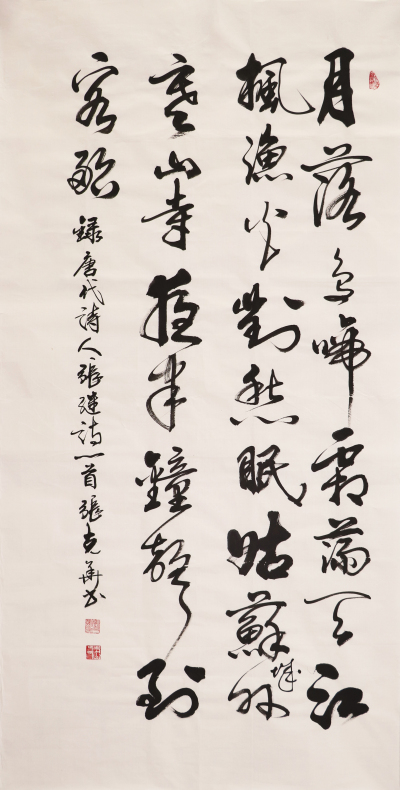 月落烏啼霜滿天江
楓漁火對愁眠姑蘇城外
寒山寺夜半鐘聲到
客船
錄唐代詩人張继詩一首張克華书